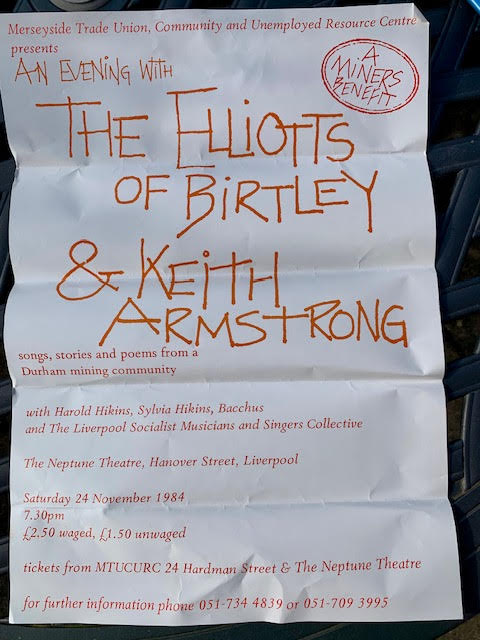 Merseyside Trade Union, Community and Unemployed Resource Centre
presents
AN EVENING WITH
A
MINERS
BENEFIT
THE ELLIOTTS
OF BIRTLEY
& KEITH
ARMSTRONG
songs, stories and poems from a
Durham mining community
with Harold Hikins, Sylvia Hikins, Bacchus
and The Liverpool Socialist Musicians and Singers Collective
The Neptune Theatre, Hanover Street, Liverpool
Saturday 24 November 1984
7.30pm
£2.50 waged, £1.50 unwaged
tickets from MTUCURC 24 Hardman Street & The Neptune Theatre
for further information phone 051-734 4839 or 051-709 3995